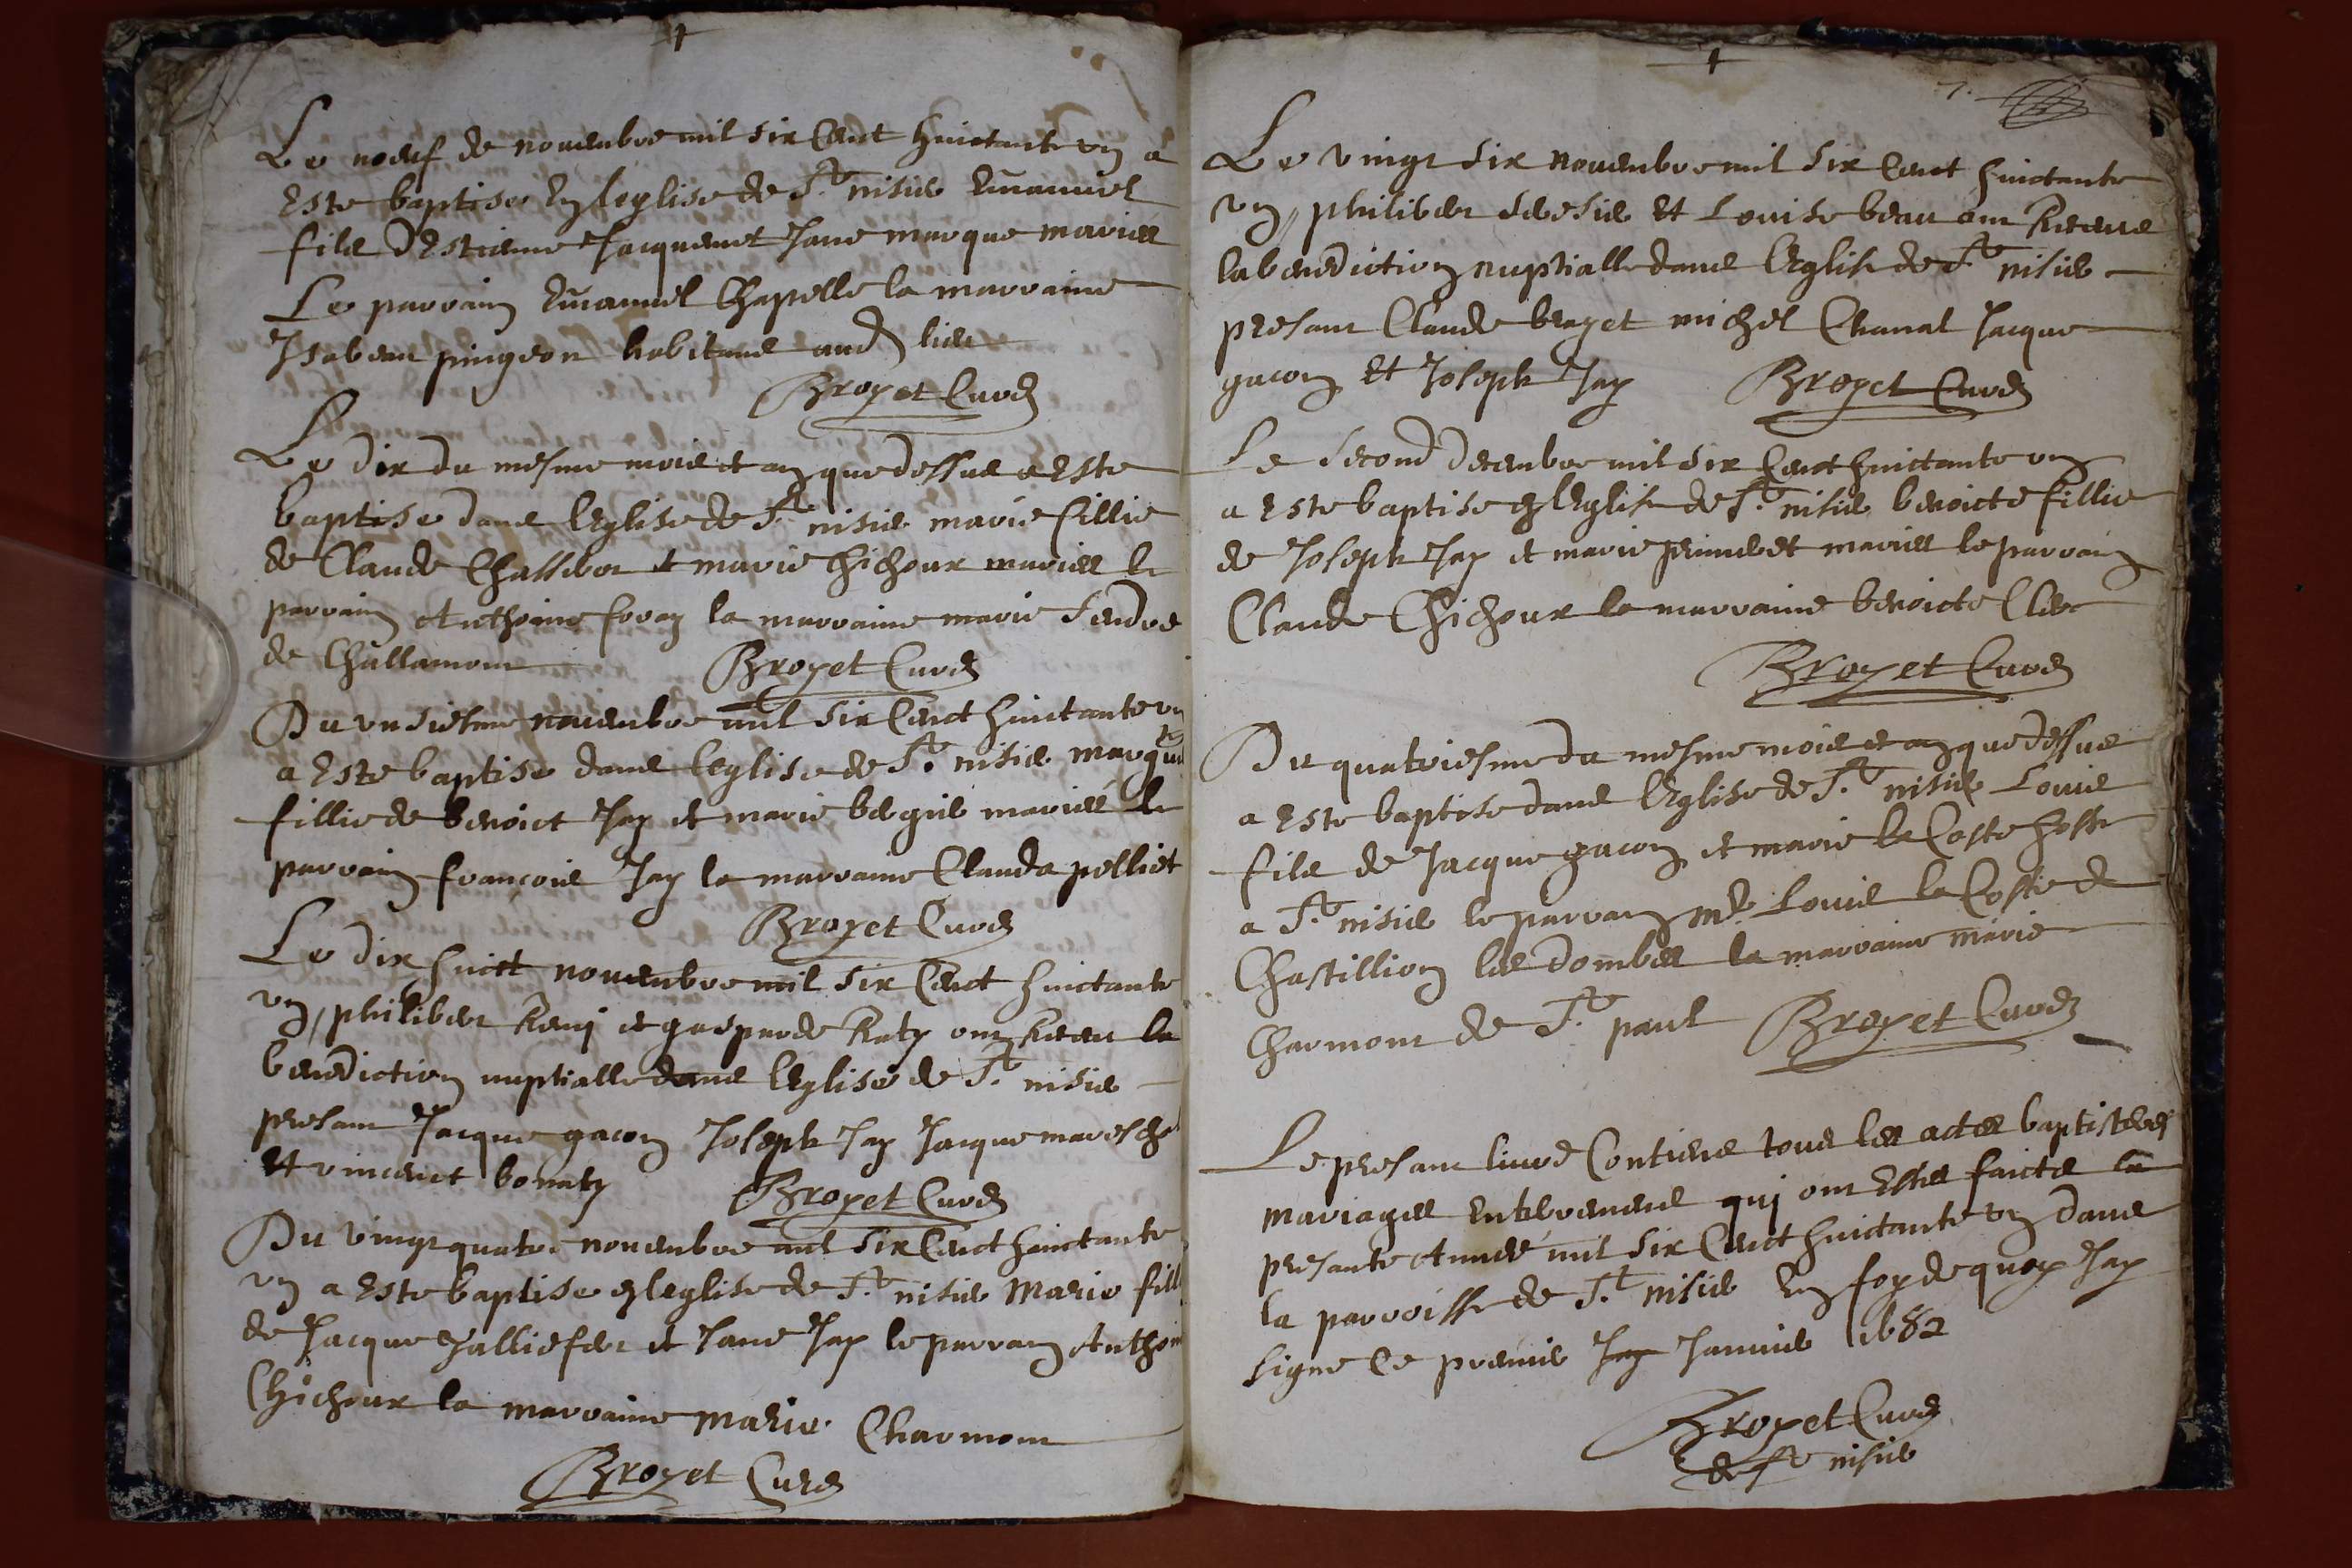 Le noeuf de novembre mil six cent huictante un a
este baptise en leglise de St nisie Emanuel
fils destienne Jacquemet Jane marque mariés
Le parrain Emanuel Chapelle la marraine
Isabeau pingeon habitans aud lieu
Broyet Curé
Le dix du mesme mois et an que dessus a este
baptise dans leglise de St nisie marie fillie
de Claude et marie Chichoux mariés le
parrain Anthoine la marraine marie
de Challamont Broyet Curé
Du unsiesme novembre mil six cent huictante un
a este baptise dans leglise de St nisie
fillie de benoict Jay et marie mariés le
parrain françois Jay la marraine Clauda pelliet
Broyet Curé
Le dix huict novembre mil six cent huictante
un, philiber Remj et gasparde Raty ont receu la
benediction nuptialle dans leglise de St nisie
presant Jacque gacon Joseph Jay Jacque mareschal
et vincent bonaty Broyet Curé
Du vingt quatre novembre mil six cent huictante
un a este baptise en leglise de St nisie Marie fill
de Jacque et Jane Jay le parrain Anthoi
Chichoux la marraine marie Charmont
Broyet Curé
7.
Le vingt six novembre mil six cent huictante
un, philiber et Louise beau ont receus
la benediction nuptialle dans leglise de St nisie
presant Claude broyet michel Chanal Jacque
gacon et Joseph Jay Broyet Curé
Le second decembre mil six cent huictante un
a este baptise en leglise de St nisie benoicte fillie
de Joseph Jay et marie mariés le parrain
Claude Chichoux la marraine benoicte Clerc
Broyet Curé
Du quatriesme du mesme mois et an que dessus
a este baptise dans leglise de St nisie Louis
fils de Jacque gacon et marie la Coste hoste
a St nisie le parrain mr Louis la Coste de
Chastillion les dombes la marraine marie
Charmont de St paul Broyet Curé
Le presant livre Contiens tous les actes baptisteres
mariages enterremens qui ont estes faicts la
presante Année mil six cent huictante un dans
la parroisse de St nisie en foy de quoy Jay
signe ce premie Jay Janvie 1682
Broyet Curé
de St nisie